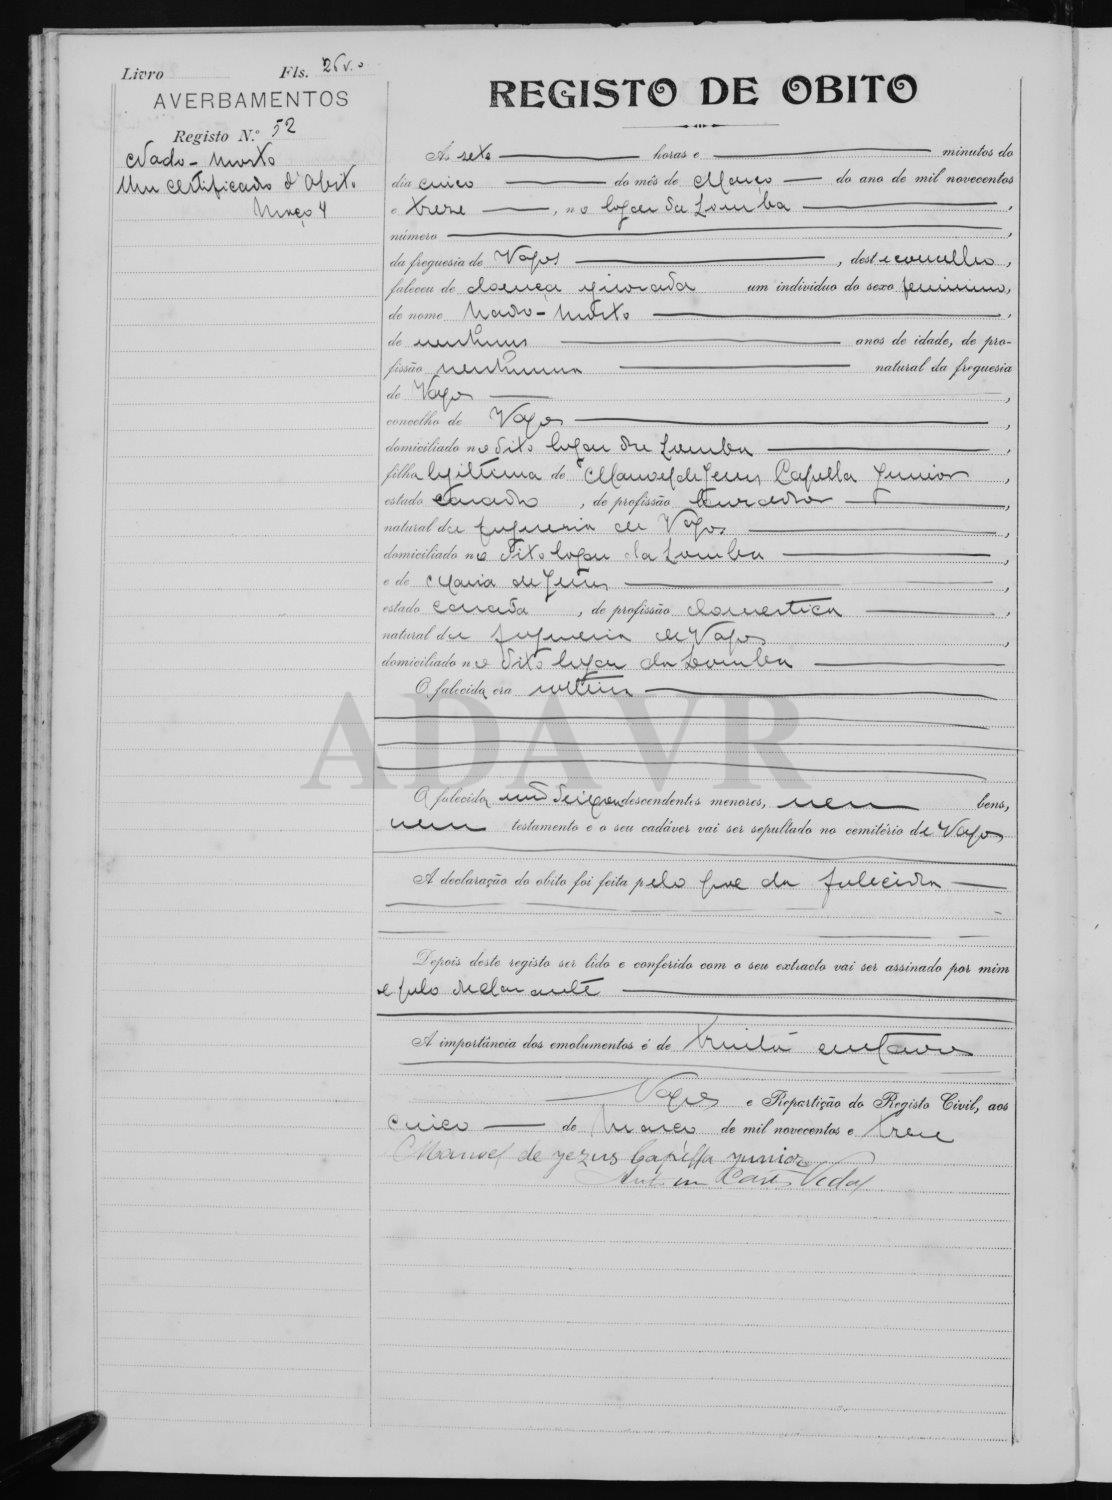 Livro Fls. 26 v.º
AVERBAMENTOS
Registo N.º 52
Nado-morto
Um certificado d'obito
Março 4
REGISTO DE OBITO
Ás sete horas e minutos do
dia cinco do mês de Março do ano de mil novecentos
e treze, no logar da Lomba,
número,
da freguesia de Vagos, deste concelho,
faleceu de doença ignorada um individuo do sexo feminino,
de nome Nado-morto,
de nenhuns anos de idade, de pro-
fissão nenhuma natural da freguesia
de Vagos,
concelho de Vagos,
domiciliado no dito logar da Lomba,
filha legitima de Manoel de Jesus Capella Junior,
estado casado, de profissão lavrador,
natural da freguesia de Vagos,
domiciliado no dito logar da Lomba,
e de Maria de Jesus,
estado casada, de profissão domestica,
natural da freguesia de Vagos,
domiciliado no dito logar da Lomba
O falecida era solteira
ADAVR
O falecida não deixou descendentes menores, nem bens,
nem testamento e o seu cadáver vai ser sepultado no cemitério de Vagos
A declaração do obito foi feita pelo pae da falecida
Depois deste registo ser lido e conferido com o seu extracto vai ser assinado por mim
e pelo declarante
A importância dos emolumentos é de trinta centavos
Vagos e Repartição do Registo Civil, aos
cinco de Março de mil novecentos e treze
Manoel de jezus Capélla junior
Vidal